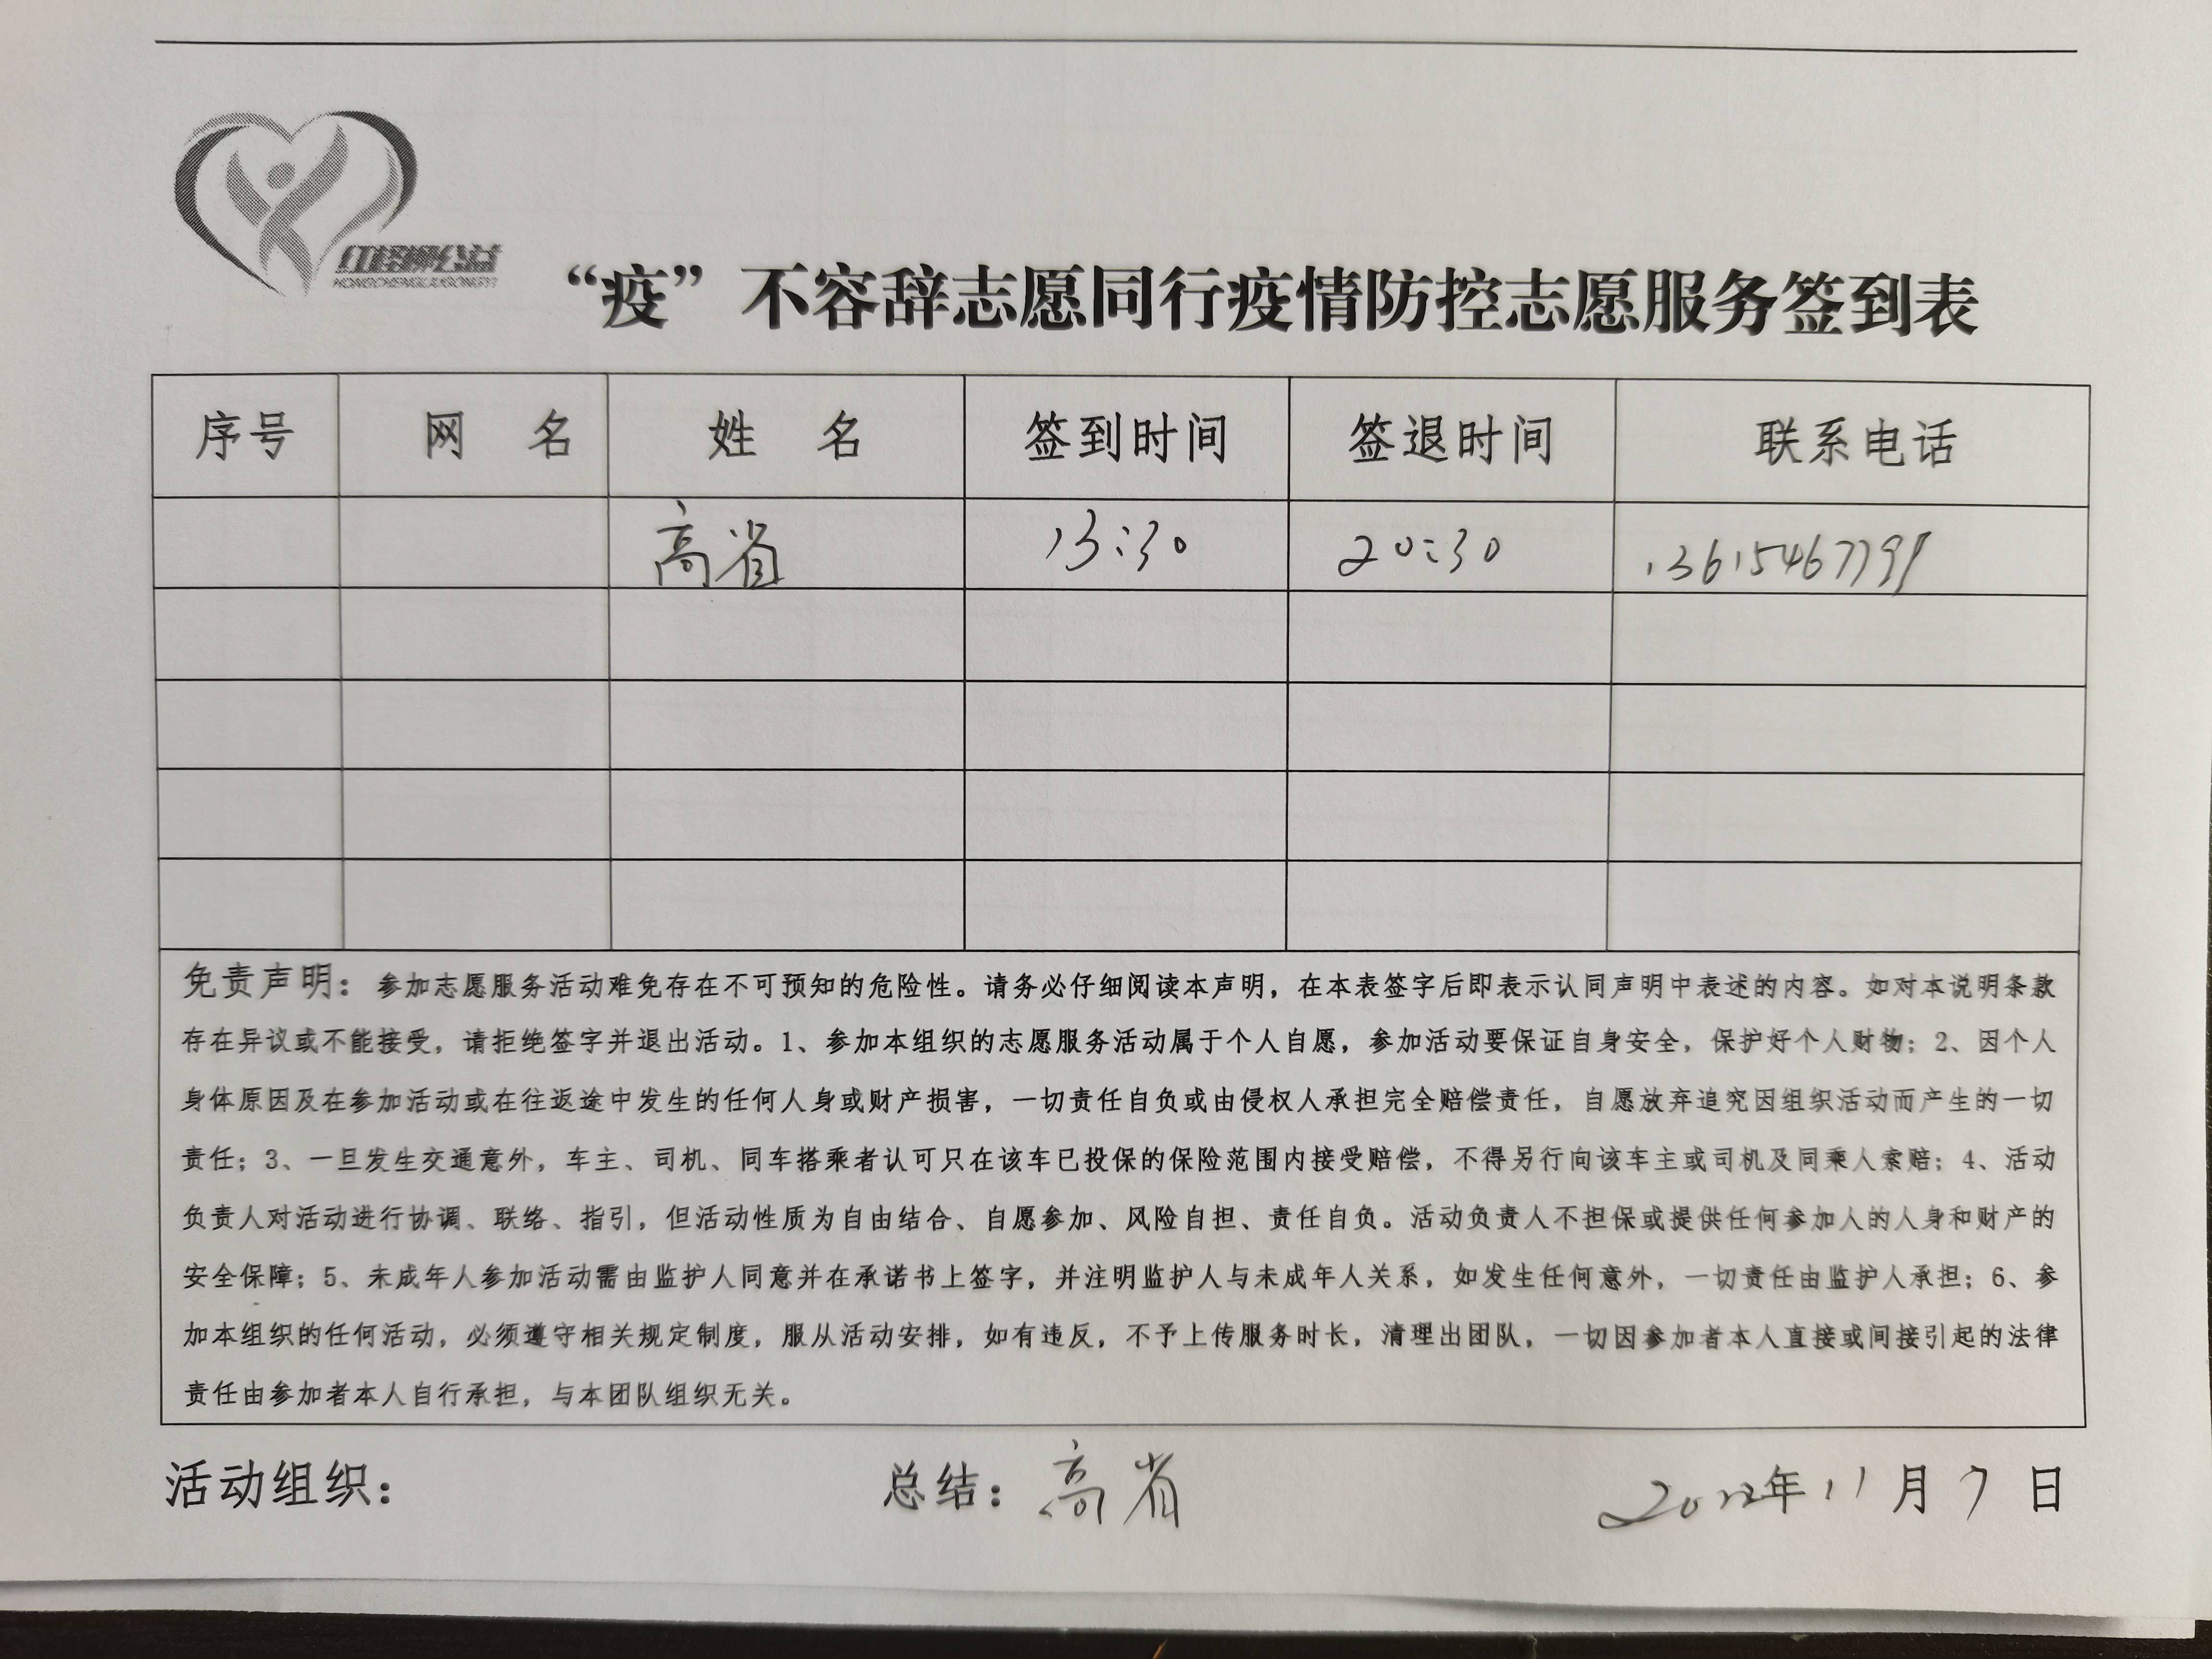 红柽柳公益
HONGCHENGLIUGONGYI
“疫”不容辞志愿同行疫情防控志愿服务签到表
序号 网 名 姓 名 签到时间 签退时间 联系电话
高省 13:30 20:30 13615467791
免责声明：参加志愿服务活动难免存在不可预知的危险性。请务必仔细阅读本声明，在本表签字后即表示认同声明中表述的内容。如对本说明条款
存在异议或不能接受，请拒绝签字并退出活动。1、参加本组织的志愿服务活动属于个人自愿，参加活动要保证自身安全，保护好个人财物；2、因个人
身体原因及在参加活动或在往返途中发生的任何人身或财产损害，一切责任自负或由侵权人承担完全赔偿责任，自愿放弃追究因组织活动而产生的一切
责任；3、一旦发生交通意外，车主、司机、同车搭乘者认可只在该车已投保的保险范围内接受赔偿，不得另行向该车主或司机及同乘人索赔；4、活动
负责人对活动进行协调、联络、指引，但活动性质为自由结合、自愿参加、风险自担、责任自负。活动负责人不担保或提供任何参加人的人身和财产的
安全保障；5、未成年人参加活动需由监护人同意并在承诺书上签字，并注明监护人与未成年人关系，如发生任何意外，一切责任由监护人承担；6、参
加本组织的任何活动，必须遵守相关规定制度，服从活动安排，如有违反，不予上传服务时长，清理出团队，一切因参加者本人直接或间接引起的法律
责任由参加者本人自行承担，与本团队组织无关。
活动组织： 总结：高省 2022年11月7日